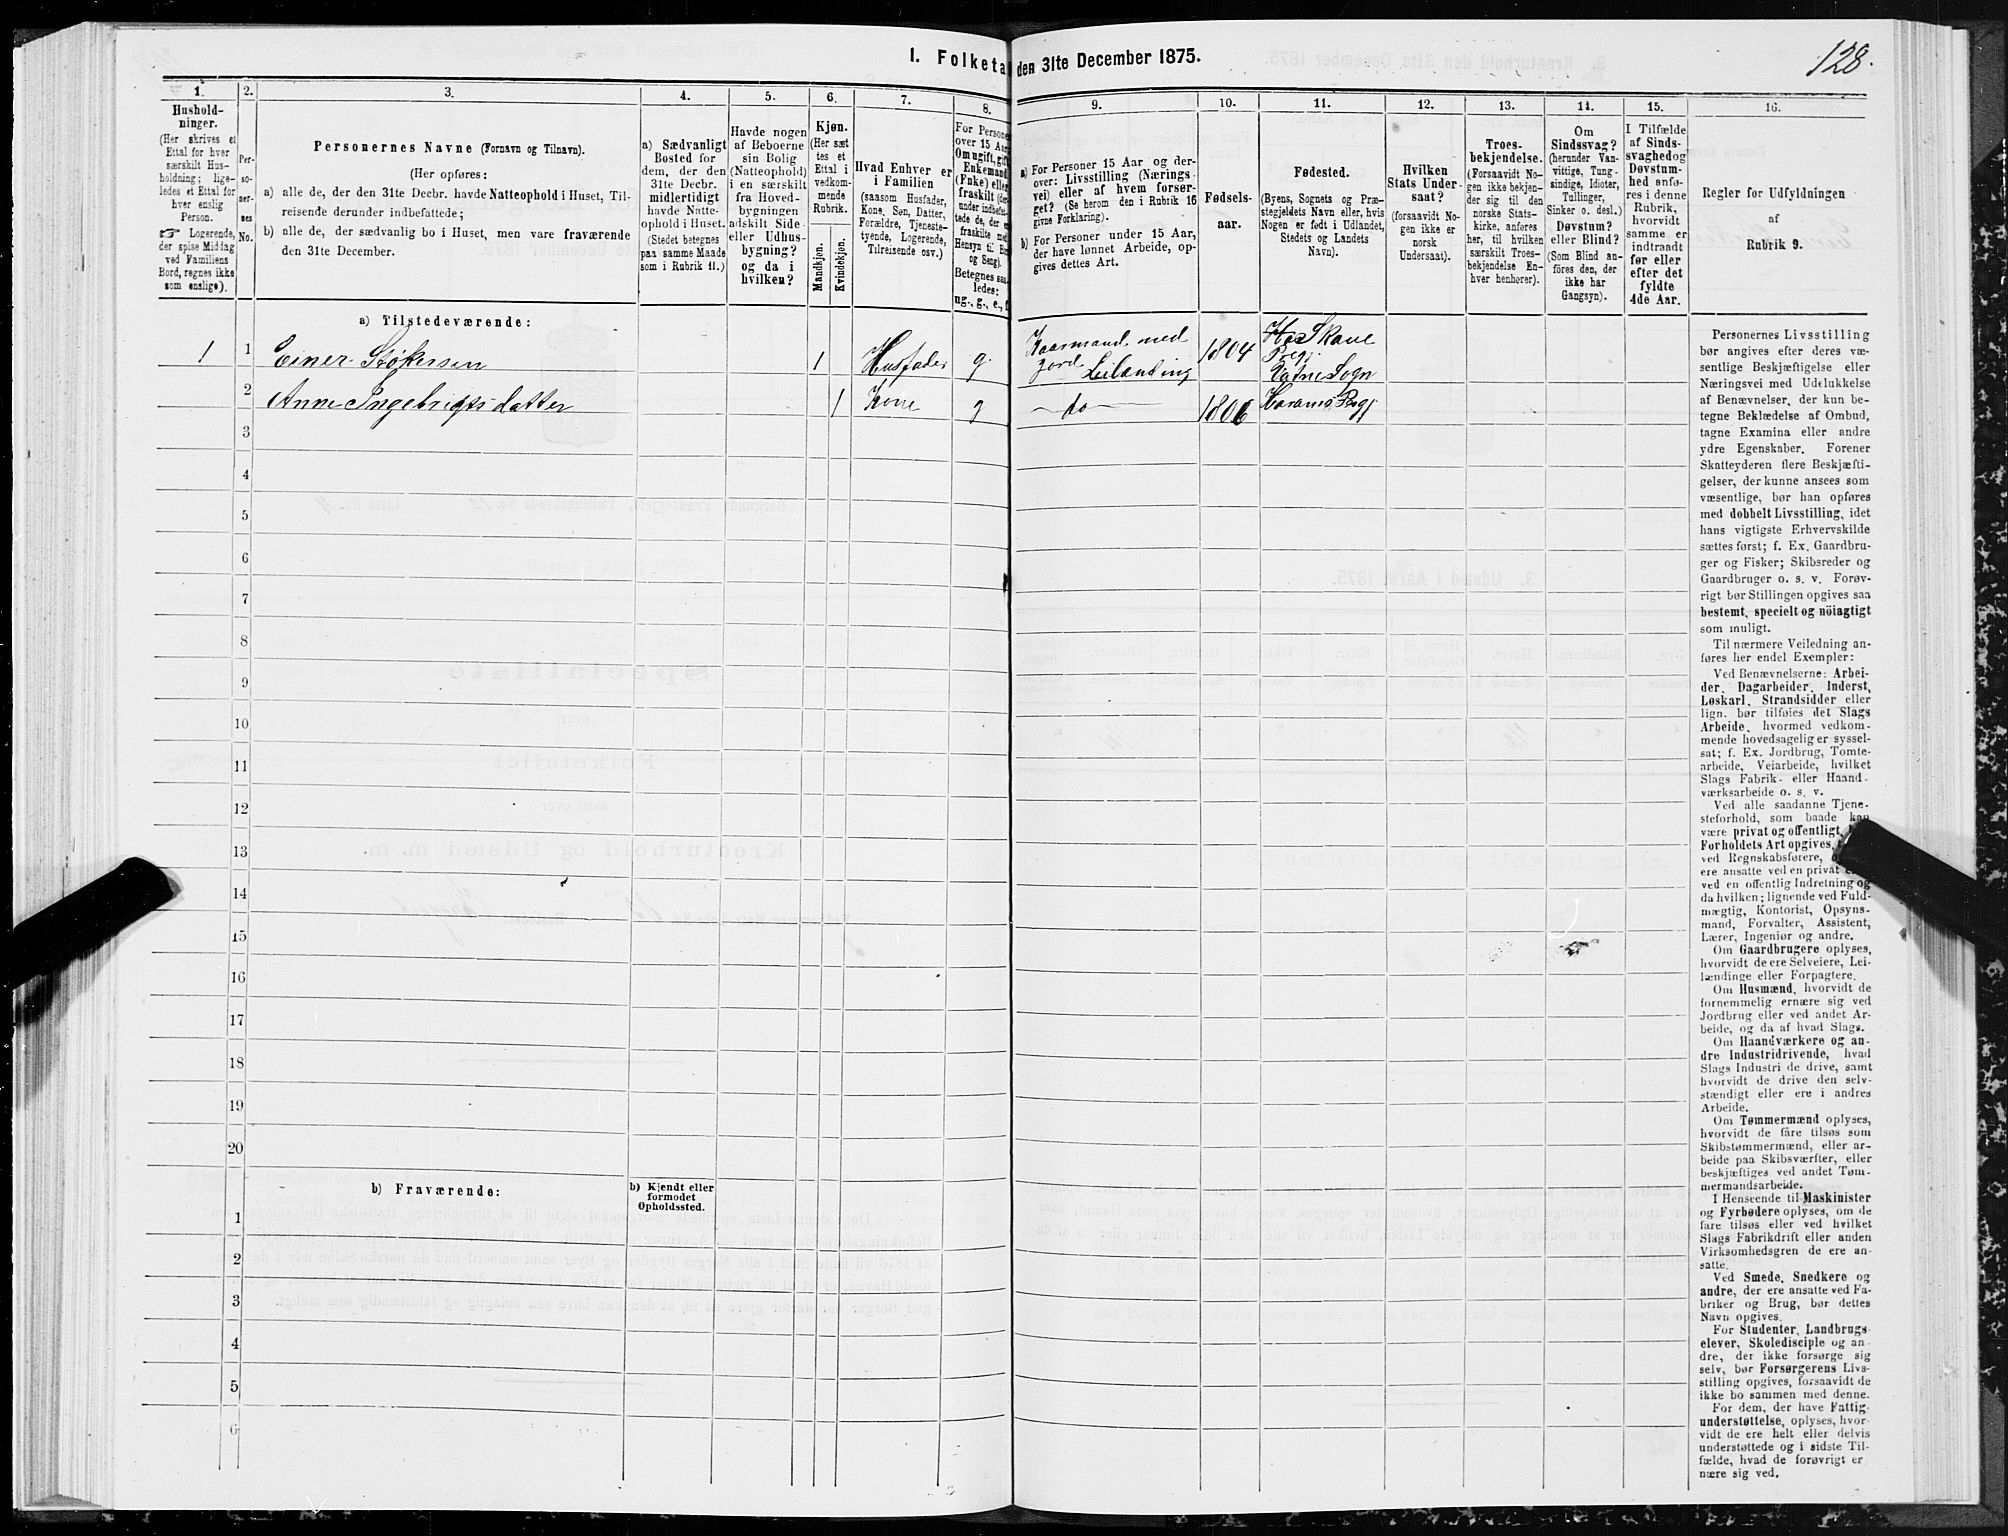 128.
I. Folketa den 31te December 1875.
1. 2. 3. 4. 5. 6. 7. 8. 9. 10. 11. 12. 13. 14. 15. 16.
Hushold-
ninger.
(Her skrives et
Ettal for hver
særskilt Hus-
holdning; lige-
ledes et Ettal for
hver enslig
Person.
☞ Logerende,
der spise Middag
ved Familiens
Bord, regnes ikke
som enslige).
Per-
so-
ner-
nes
No.
Personernes Navne (Fornavn og Tilnavn).
(Her opføres:
a) alle de, der den 31te Decbr. havde Natteophold i Huset, Til-
reisende derunder indbefattede;
b) alle de, der sædvanlig bo i Huset, men vare fraværende
den 31te December.
a) Sædvanligt
Bosted for
dem, der den
31te Decbr.
midlertidigt
havde Natte-
ophold i Huset.
(Stedet betegnes
paa samme Maade
som i Rubrik 11.)
Havde nogen
af Beboerne
sin Bolig
(Natteophold)
i en særskilt
fra Hoved-
bygningen
adskilt Side-
eller Udhus-
bygning?
og da i
hvilken?
Kjøn.
(Her sæt
tes et
Ettal i
vedkom-
mende
Rubrik.
Mandkjøn.
Kvindekjøn.
Hvad Enhver er
i Familien
(saasom Husfader,
Kone, Søn, Datter,
Forældre, Tjeneste-
tyende, Logerende,
Tilreisende osv.)
For Persone
over 15 Aar
Om ugift, gift
Enkemand
(Enke) eller
fraskilt (der-
under indbefat-
tede de, der er
fraskilte med
Hensyn til Bo
og Seng).
Betegnes saa-
ledes:
ug., g., e., f.
a) For Personer 15 Aar og der-
over: Livsstilling (Nærings-
vei) eller af hvem forsør-
get? (Se herom den i Rubrik 16
givne Forklaring).
b) For Personer under 15 Aar,
der have lønnet Arbeide, op-
gives dettes Art.
Fødsels-
aar.
Fødested.
(Byens, Sognets og Præ-
stegjeldets Navn eller, hvis
Nogen er født i Udlandet,
Stedets og Landets
Navn).
Hvilken
Stats Under-
saat?
(forsaavidt No-
gen ikke er
norsk
Undersaat).
Troes-
bekjendelse.
(Forsaavidt No-
gen ikke bekjen-
der sig til den
norske Stats-
kirke, anføres
her, til hvilken
særskilt Troes-
bekjendelse En-
hver henhører).
Om
Sindssvag?
(herunder Van-
vittige, Tung-
sindige, Idioter,
Tullinger,
Sinker o. desl.)
Døvstum?
eller Blind?
(Som Blind an-
føres den, der
ikke har
Gangsyn).
I Tilfælde
af Sinds-
svaghed og
Døvstum-
hed anfø-
res i denne
Rubrik,
hvorvidt
samme er
indtraadt
før eller
efter det
fyldte
4de Aar.
Regler for Udfyldningen
af
Rubrik 9.
a) Tilstedeværende:
1 1 Einer Størkersen 1 Husfader g. Kaarmand med jord Leilending 1804 Skaue Pregj.
2 Anne Ingebrigtsdatter 1 Kone g —do— 1806 Vatne Sogn Harams Prgj
3
4
5
6
7
8
9
10
11
12
13
14
15
16
17
18
19
20
b) Fraværende:
b) Kjendt eller
formodet
Opholdssted.
1
2
3
4
5
6
Personernes Livsstilling
bør angives efter deres væ-
sentlige Beskjæftigelse eller
Næringsvei med Udelukkelse
af Benævnelser, der kun be-
tegne Beklædelse af Ombud,
tagne Examina eller andre
ydre Egenskaber. Forener
Skatteyderen flere Beskjæfti-
gelser, der kunne ansees som
væsentlige, bør han opføres
med dobbelt Livsstilling, idet
hans vigtigste Erhvervskilde
sættes først; f. Ex. Gaardbru-
ger og Fisker; Skibsreder og
Gaardbruger o. s. v. Forøv-
rigt bør Stillingen opgives saa
bestemt, specielt og nöiagtigt
som muligt.
Til nærmere Veiledning an-
føres her endel Exempler:
Ved Benævnelserne: Arbei-
der, Dagarbeider, Inderst,
Løskarl, Strandsidder eller
lign. bør tilføies det Slags
Arbeide, hvormed vedkom-
mende hovedsagelig er syssel-
sat; f. Ex. Jordbrug, Tomte-
arbeide, Veiarbeide, hvilket
Slags Fabrik- eller Haand-
værksarbeide o. s. v.
Ved alle saadanne Tjene-
steforhold, som baade kan
være privat og offentligt,
Forholdets Art opgives,
ved Regnskabsførere,
ere ansatte ved en privat
ved en offentlig Indretning og
da hvilken; lignende ved Fuld-
mægtig, Kontorist, Opsyns-
mand, Forvalter, Assistent,
Lærer, Ingeniør og andre.
Om Gaardbrugere oplyses,
hvorvidt de ere Selveiere, Lei-
lændinge eller Forpagtere.
Om Husmænd, hvorvidt de
fornemmelig ernære sig ved
Jordbrug eller ved andet Ar-
beide, og da af hvad Slags.
Om Haandværkere og an-
dre Industridrivende, hvad
Slags Industri de drive, samt
hvorvidt de drive den selv-
stændigt eller ere i andres
Arbeide.
Om Tømmermænd oplyses,
hvorvidt de fåre tilsøs som
Skibstømmermænd, eller ar-
beide paa Skibsværfter, eller
beskjæftiges ved andet Tøm-
mermandsarbeide.
I Henseende til Maskinister
og Fyrbødere oplyses, om de
fare tilsøs eller ved hvilket
Slags Fabrikdrift eller anden
Virksomhedsgren de ere an-
satte.
Ved Smede, Snedkere og
andre, der ere ansatte ved Fa-
briker og Brug, bør dettes
Navn opgives.
For Studenter, Landbrugs-
elever, Skoledisciple og an-
dre, der ikke forsørge sig
selv, bør Forsørgerens Livs-
stilling opgives, forsaavidt de
ikke bo sammen med denne.
For dem, der have Fattig-
understøttelse, oplyses, hvor-
vidt de ere helt eller delvis
understøttede og i sidste Til-
fælde, hvad de forøvrigt er
nære sig ved.